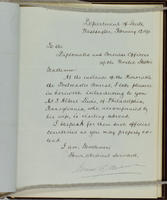 Department of State
Washington, February
To the
Diplomatic and Consular Officers
of the United States
Gentlemen:
At the instance of the Honorable
the Postmaster General, I take pleasure
in herewith introducing to you
Mr. J. Albert of Philadelphia,
Pennsylvania, who accompanied by
his wife, is starting abroad.
I bespeak for them such official
courtesies as you may properly
extend.
I am, Gentlemen,
Your obedient Servant,